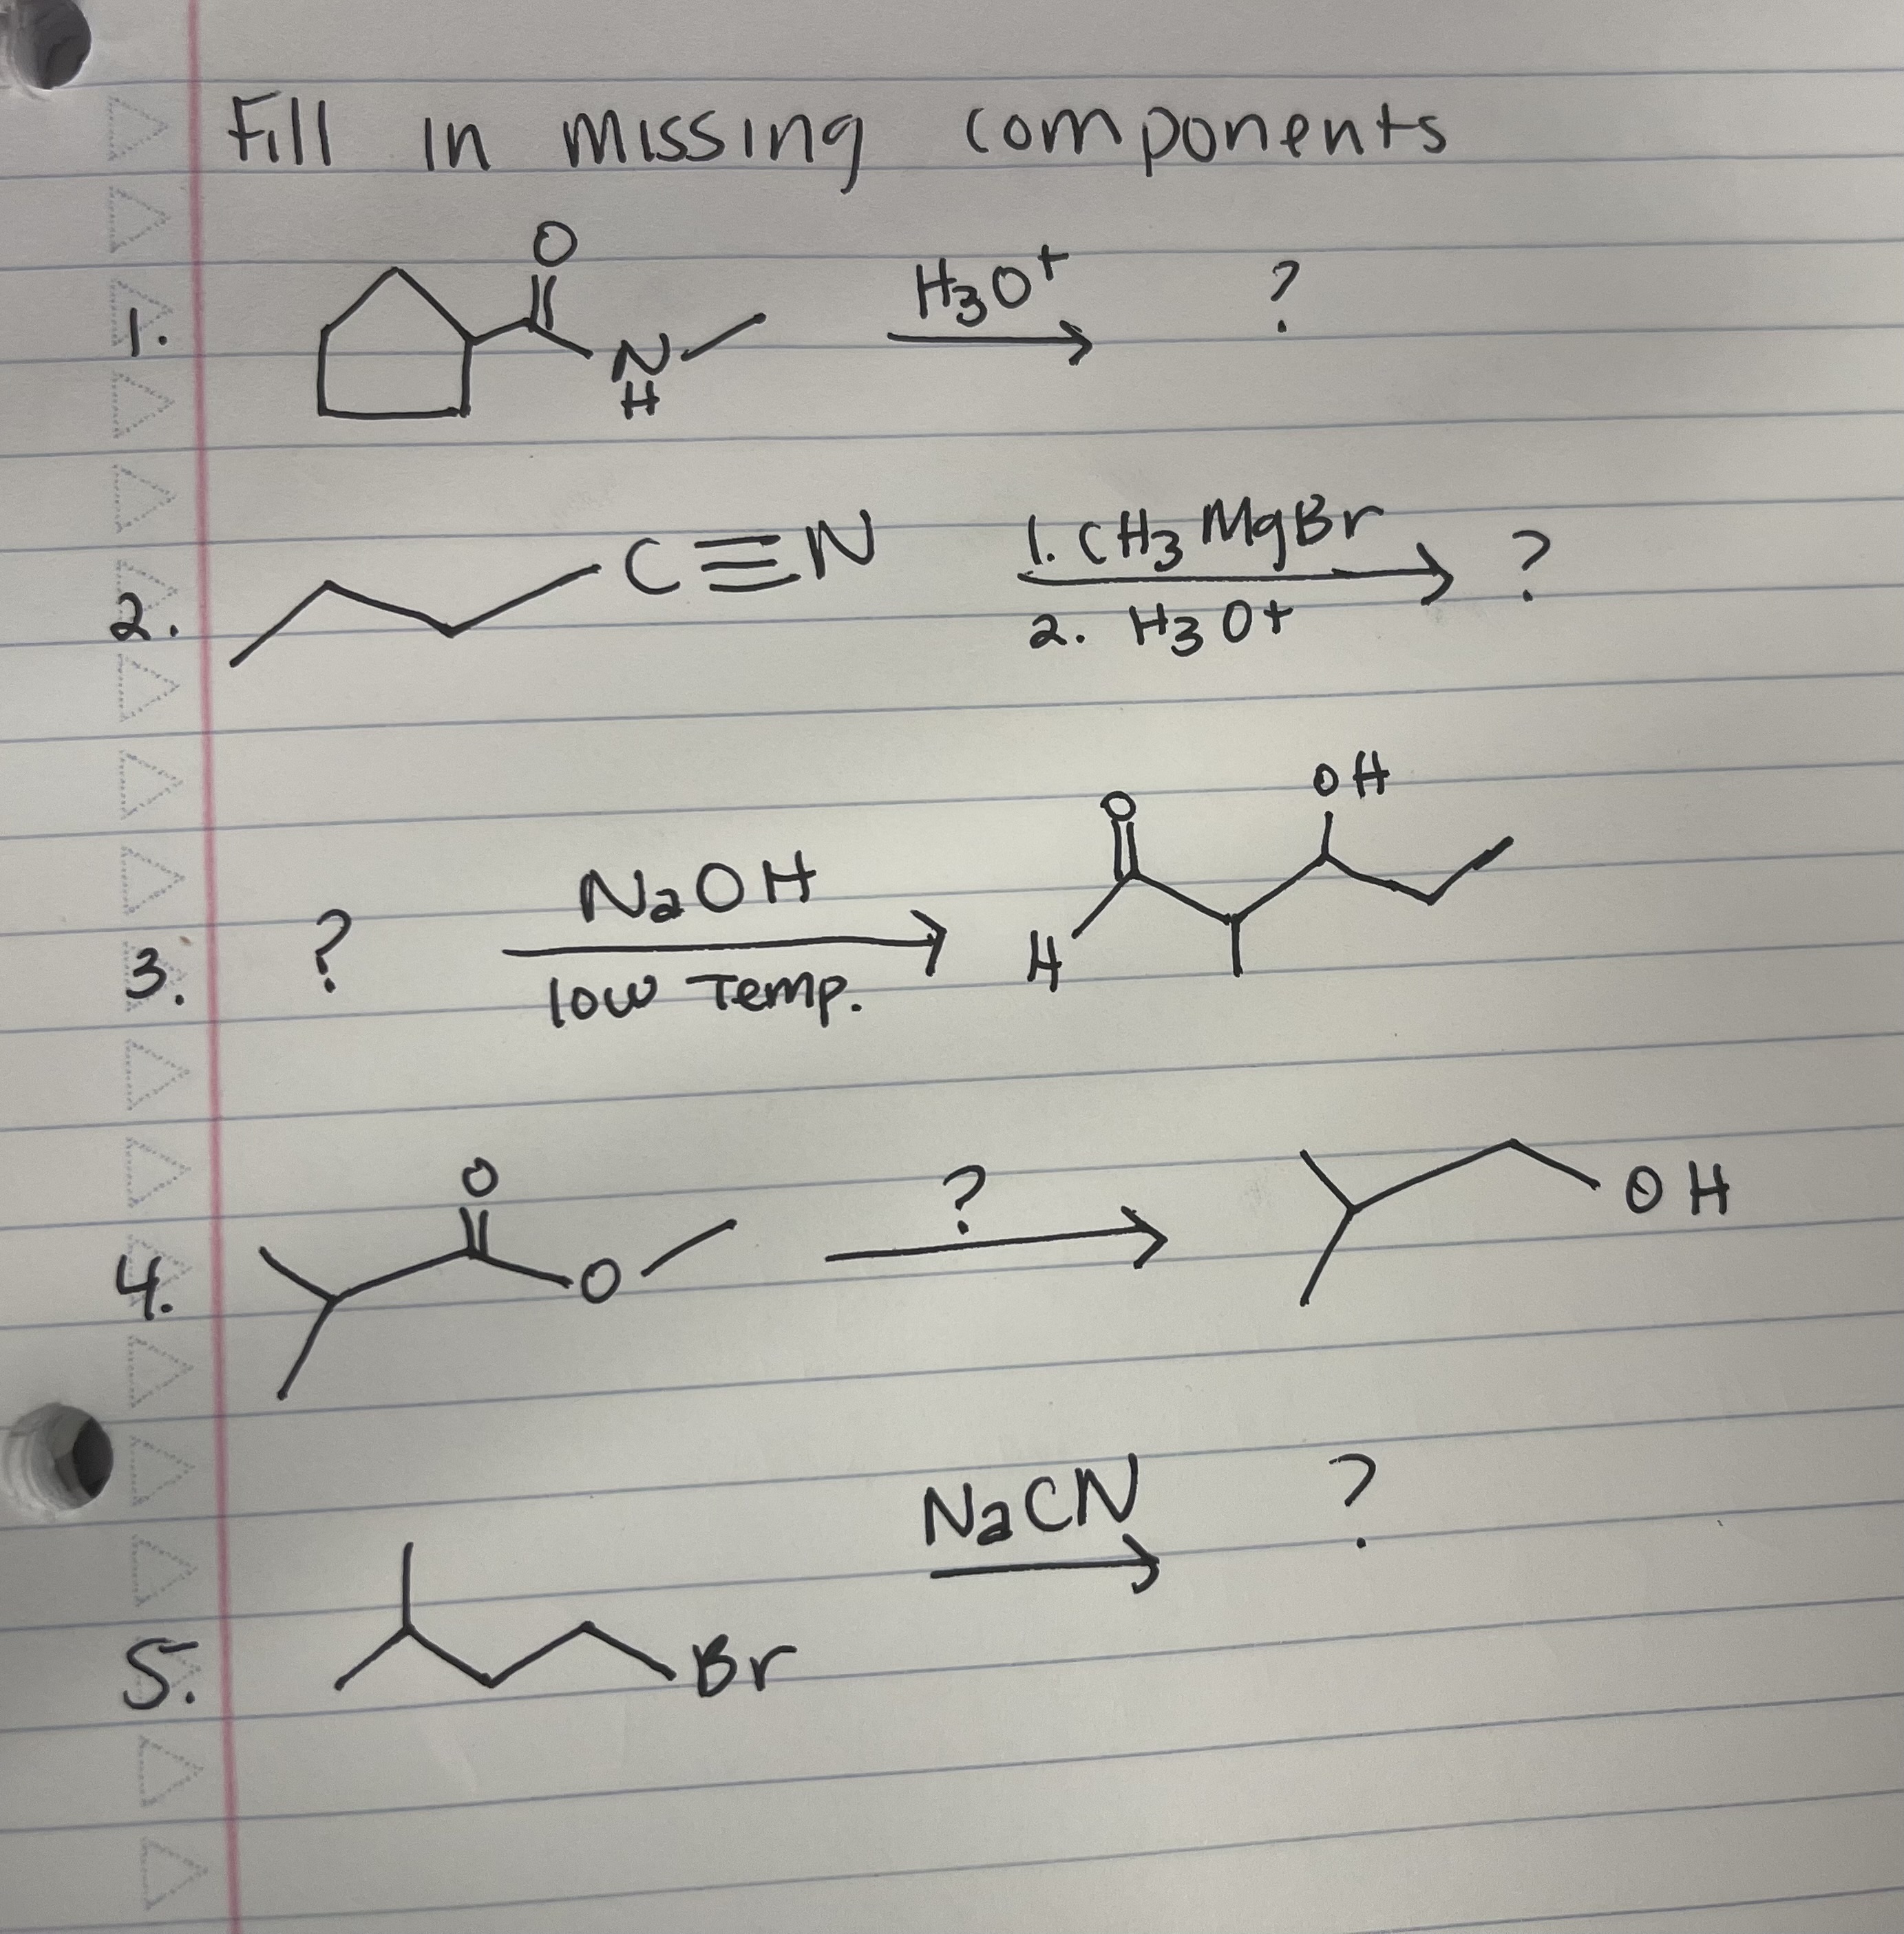 Fill in missing components
1. O N H H3O+ ?
2. C≡N 1. CH3MgBr 2. H3O+ ?
3. ? NaOH low Temp. O H OH
4. O O ? OH
5. Br NaCN ?